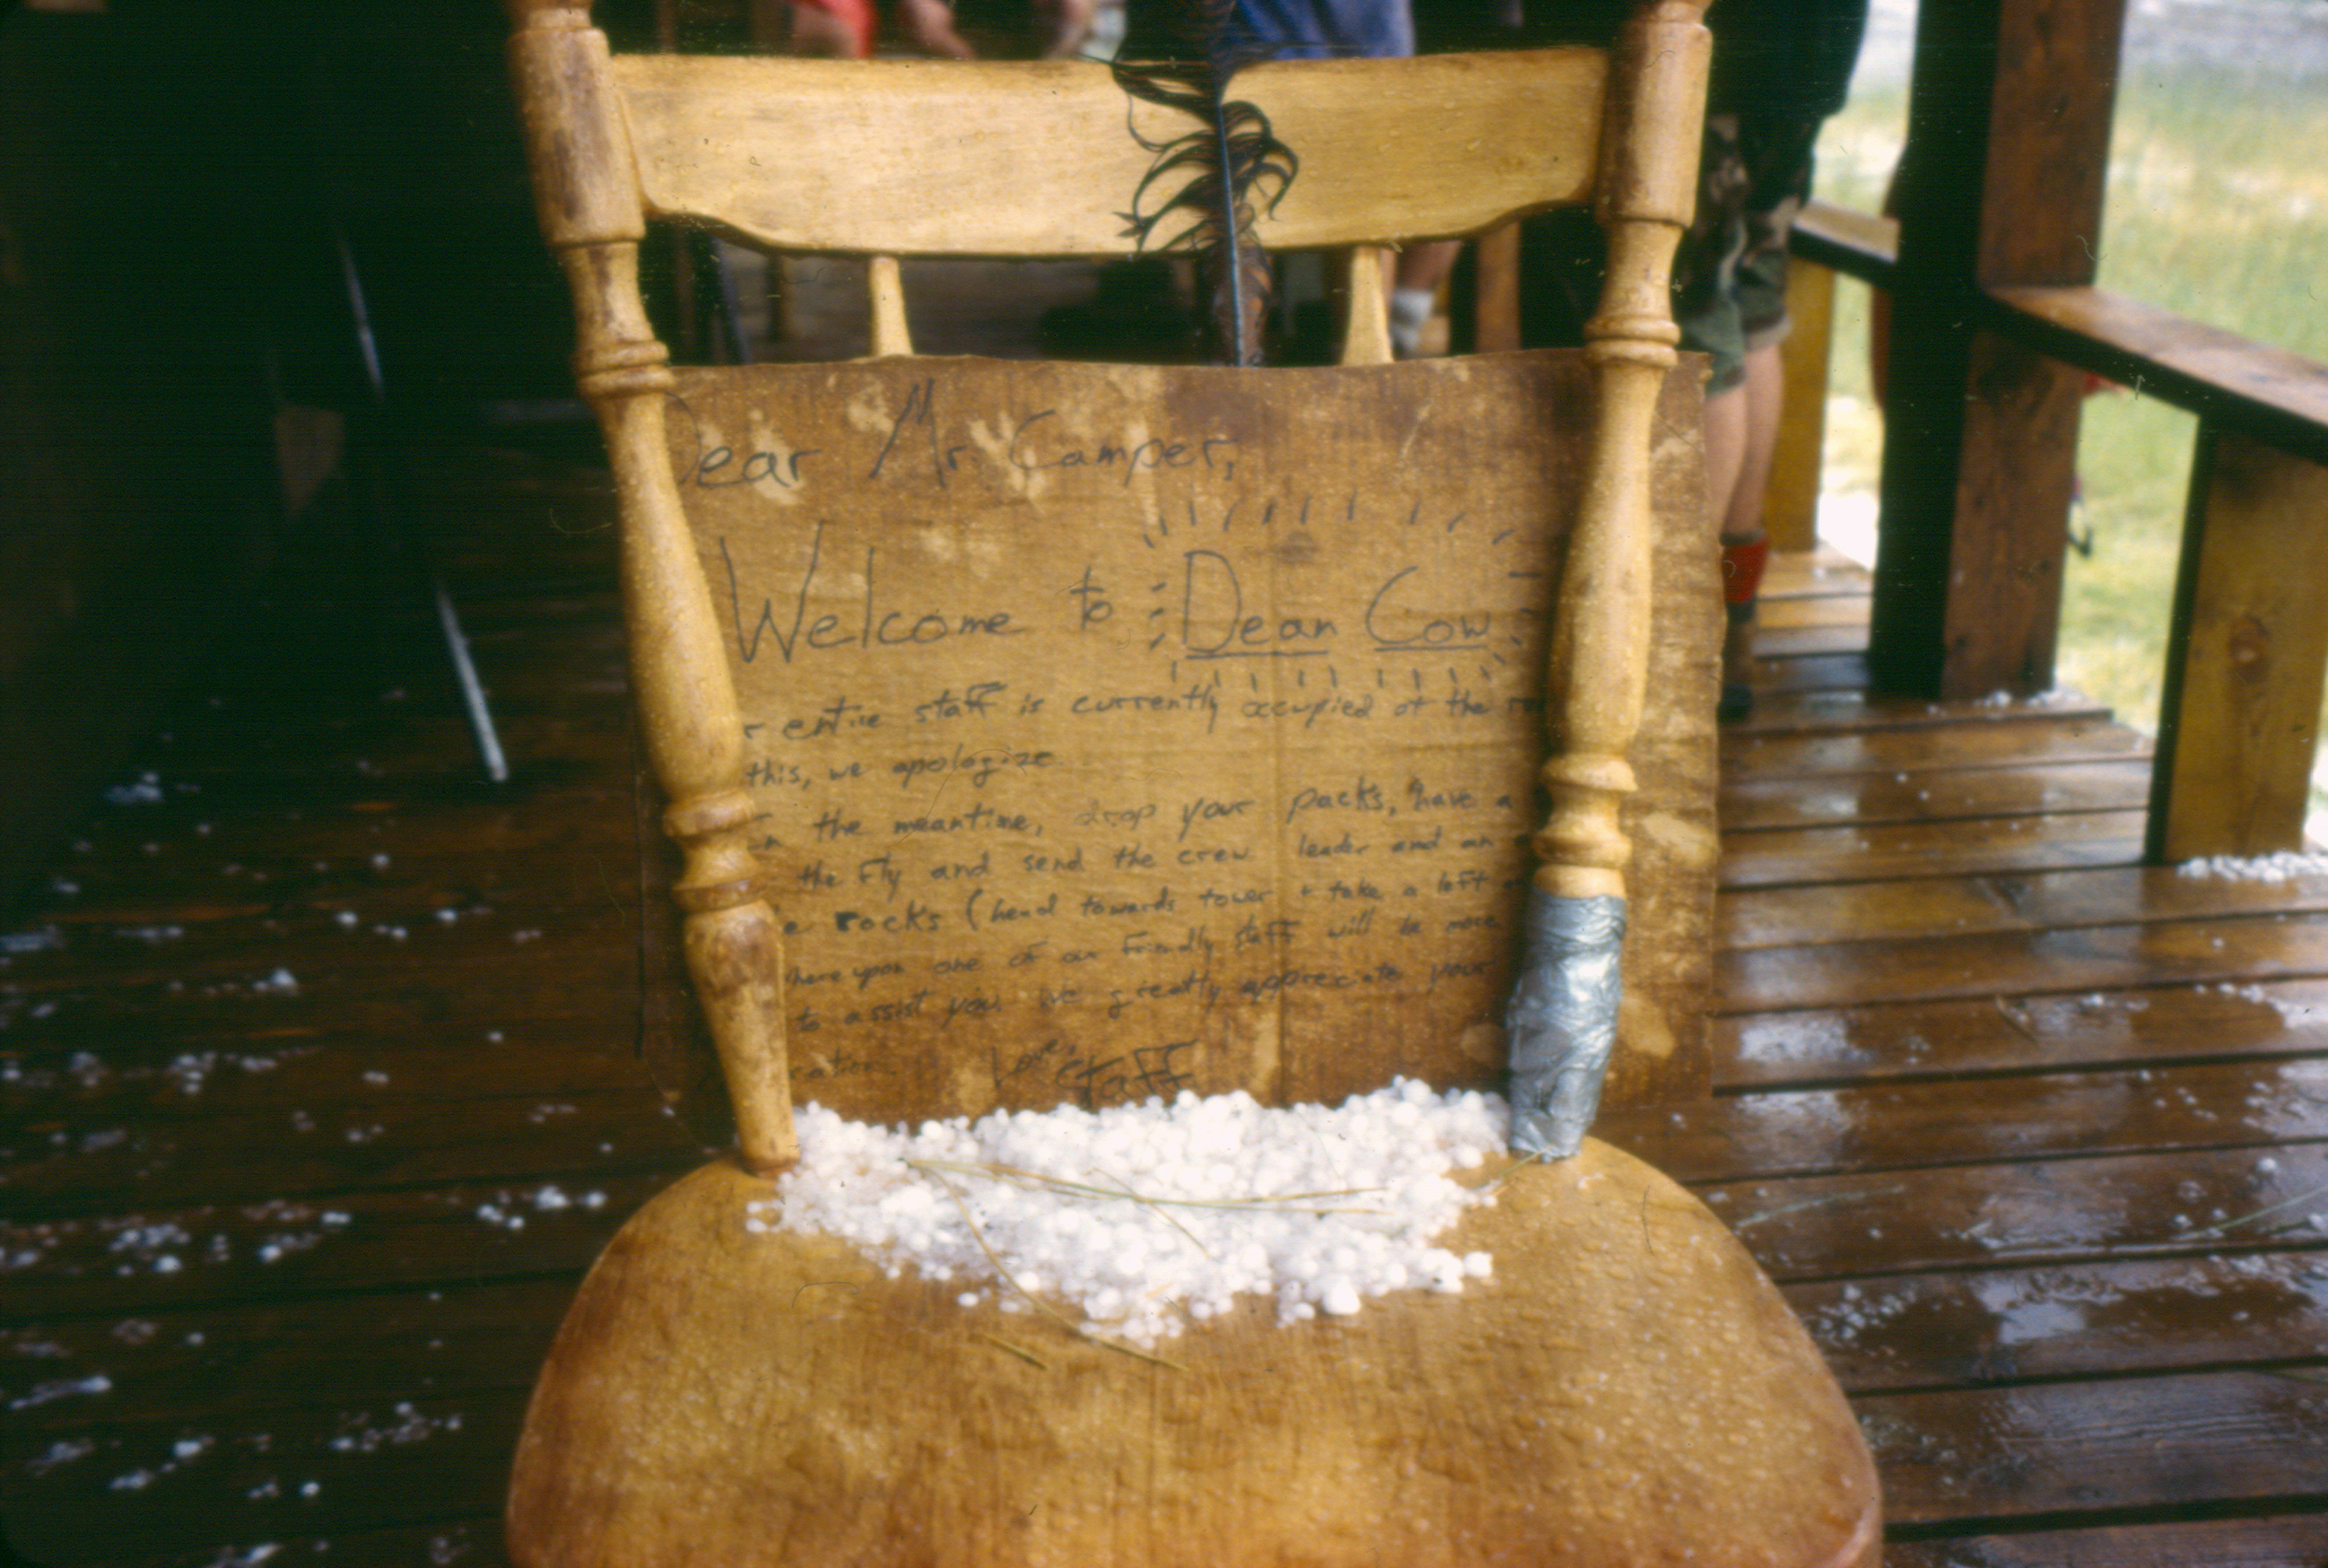 Dear Mr. Camper,
Welcome to Dean Cow
r entire staff is currently occupied at the
this, we apologize
n the meantime, drop your packs, have a
the fly and send the crew leader and an
e rocks (head towards tower + take a left
here upon one of our friendly staff will be more
to assist you. We greatly appreciate your
cation. Love,
Staff